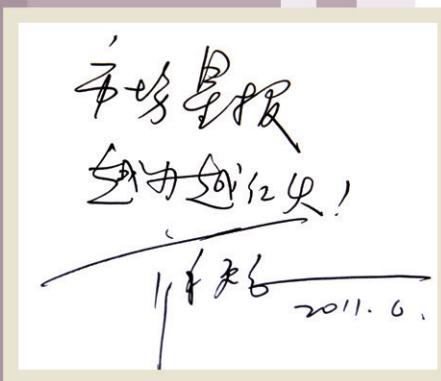 市场星报
越办越红火!
2011.6.